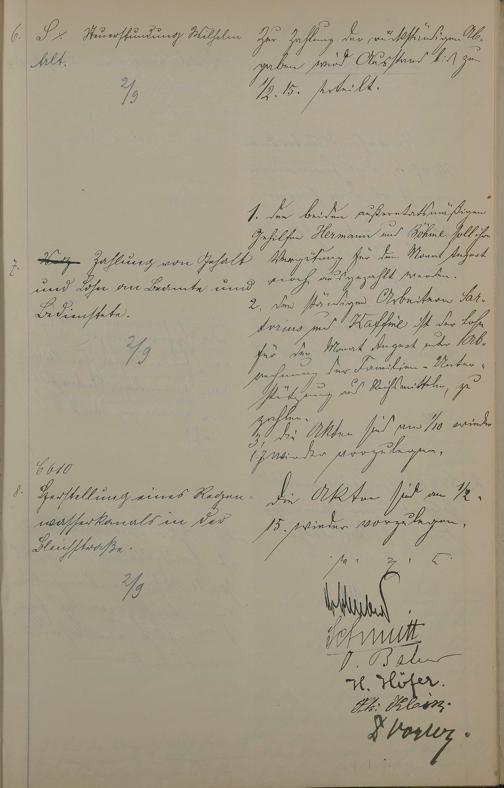 6. St. Steuerstundung Wilhelm
Alt.
2/9
Zur Zahlung der rückständigen Ab-
gaben wird Ausstand bis zum
1/2. 15. erteilt.
7. Zahlung von Gehalt
und Lohn an Beamte und
Bedienstete.
2/9
1. Den beiden außeretatsmäßigen
Gehilfen Hermann und Böhme soll ihre
Vergütung für den Monat August
noch ausgezahlt werden.
2. Den ständigen Arbeitern
und ist der Lohn
für den Monat August unter Ab-
rechnung der Familien-Unter-
stützung aus Reichsmitteln, zu
zahlen.
3, die Akten sind am 1/10 wieder
wieder vorzulegen.
C 610
8. Herstellung eines Regen-
wasserkanals in der
Bleichstraße.
2/9
Die Akten sind am 1/2.
15. wieder vorzulegen.
Schmitt
H. Höfer.
Ph. Klein.